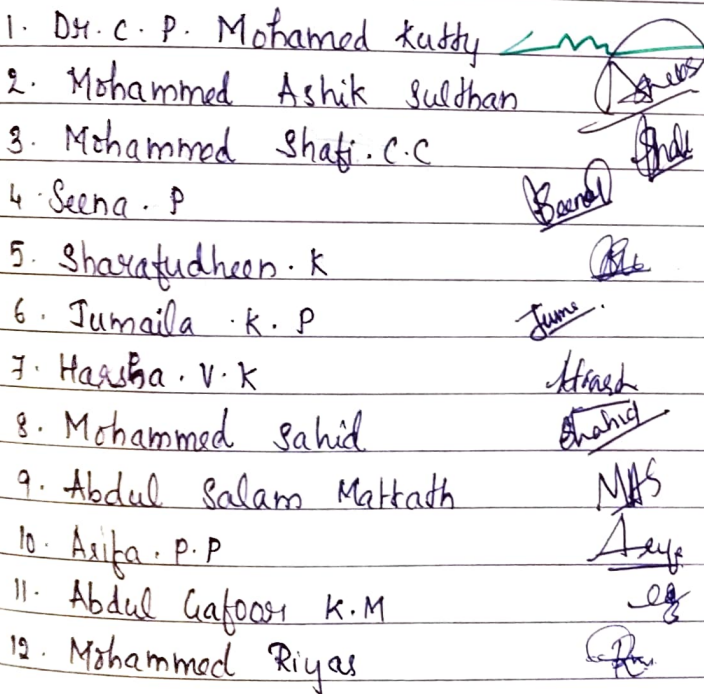 1. Dr. C. P. Mohamed Kutty
2. Mohammed Ashik Sulthan
3. Mohammed Shafi. C.C
4. Seena. P Seena
5. Sharafudheen. K
6. Jumaila .K. P Jume.
7. Harsha. V. K
8. Mohammed Sahid Shahid
9. Abdul Salam Mattath MAS
10. Asifa. P. P
11. Abdul Gafoor K.M
12. Mohammed Riyas